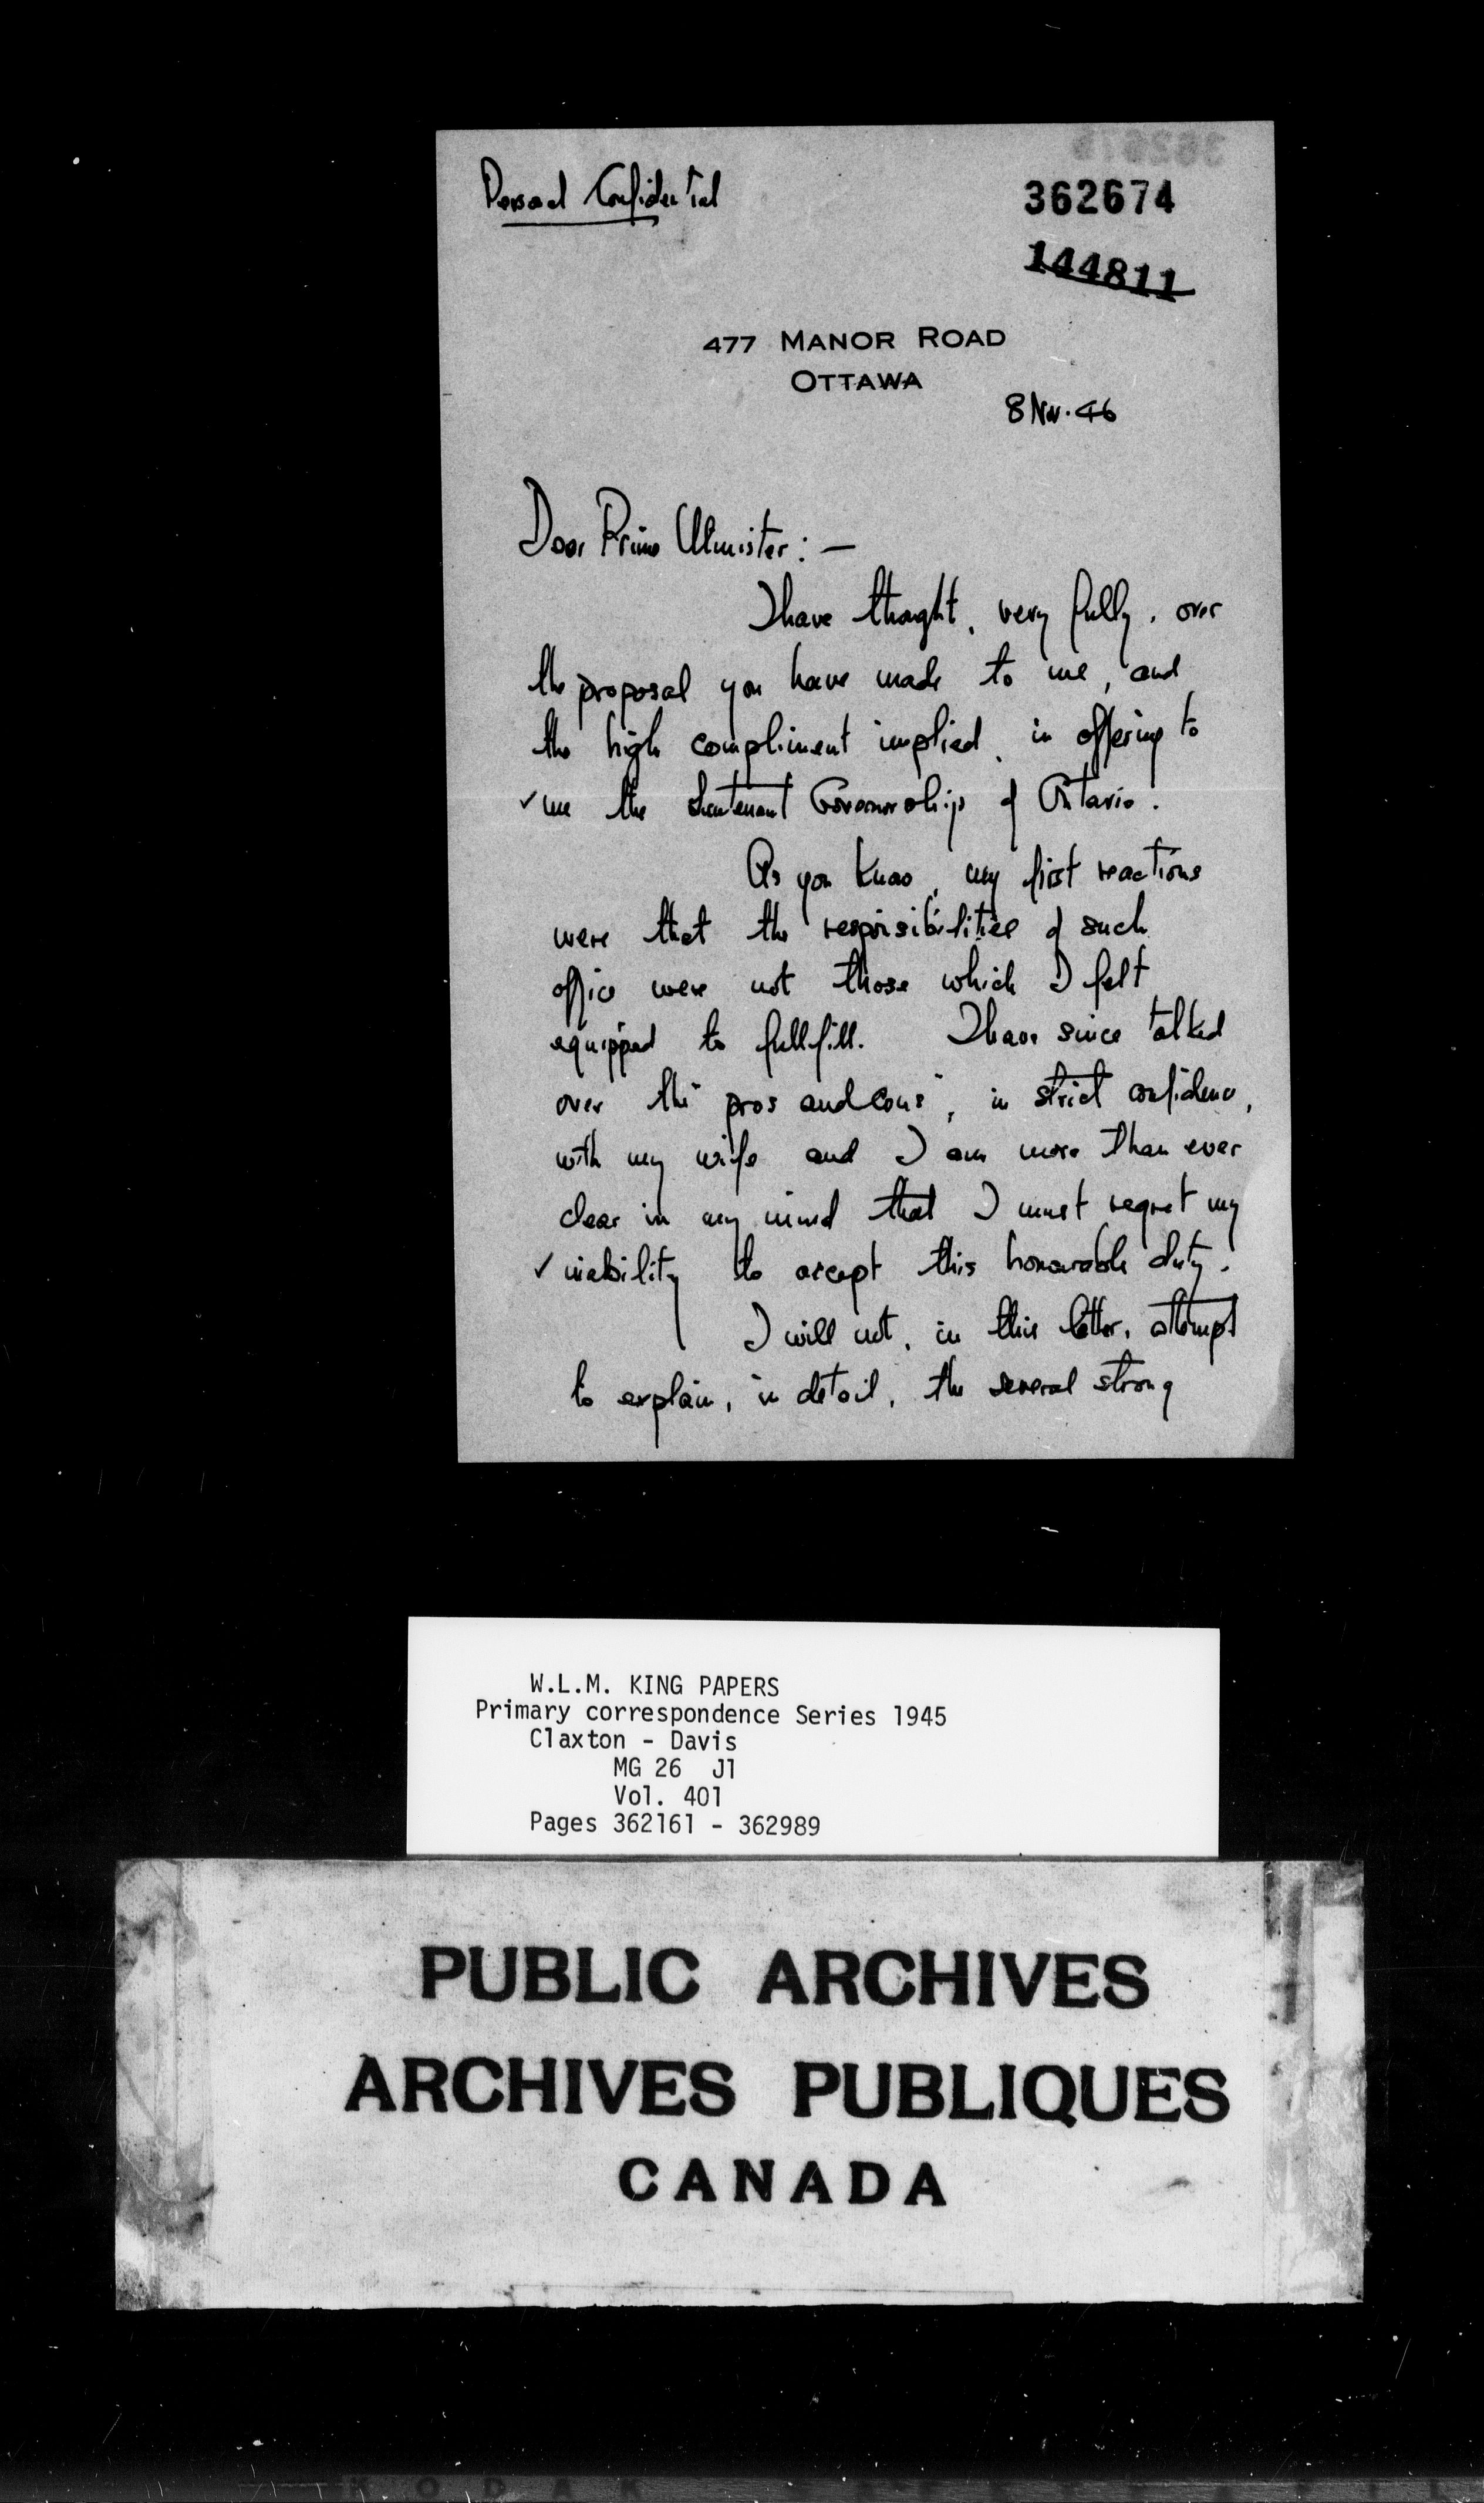 Personal Confidential
362674
144811
477 MANOR ROAD
OTTAWA
8 Nov. 46
Dear Prime Minister: —
I have thought, very fully, over
the proposal you have made to me, and
the high compliment implied, in offering to
✓ me the Lieutenant Governorship of Ontario.
As you know, my first reactions
were that the responsibilities of such
office were not those which I felt
equipped to fullfill. I have since talked
over the "pros and cons", in strict confidence,
with my wife and I am more than ever
clear in my mind that I must regret my
✓ inability to accept this honourable duty.
I will not, in this letter, attempt
to explain, in detail, the several strong
W.L.M. KING PAPERS
Primary correspondence Series 1945
Claxton - Davis
MG 26 J1
Vol. 401
Pages 362161 - 362989
PUBLIC ARCHIVES
ARCHIVES PUBLIQUES
CANADA